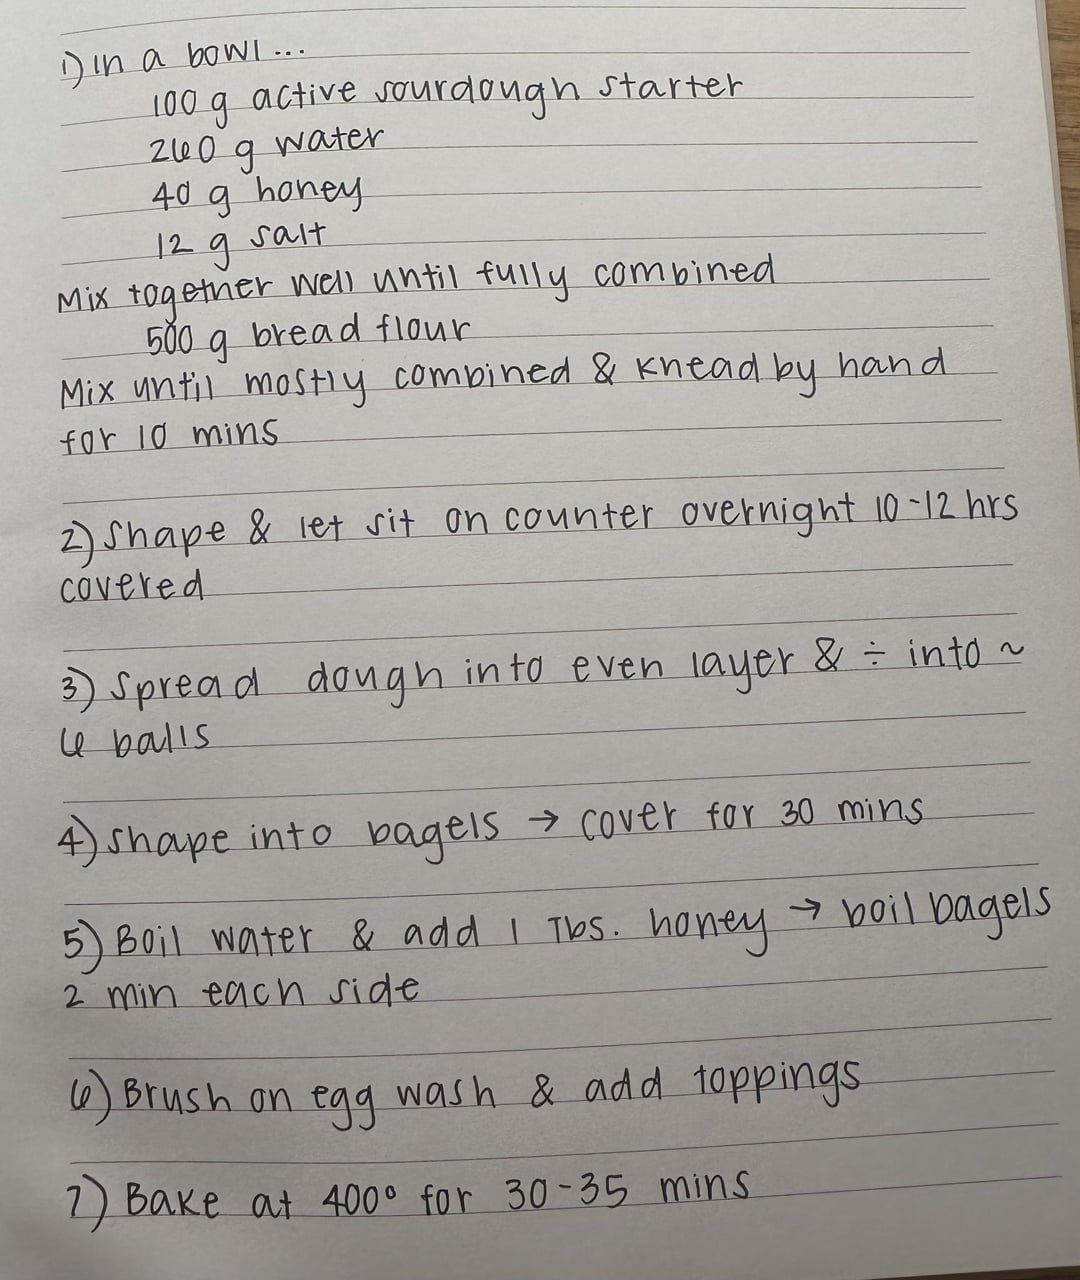 1) in a bowl...
100 g active sourdough starter
260 g water
40 g honey
12 g salt
Mix together well until fully combined
500 g bread flour
Mix until mostly combined & knead by hand
for 10 mins
2) Shape & let sit on counter overnight 10-12 hrs
covered
3) Spread dough into even layer & ÷ into ~
6 balls
4) Shape into bagels → cover for 30 mins
5) Boil water & add 1 Tbs. honey → boil bagels
2 min each side
6) Brush on egg wash & add toppings
7) Bake at 400° for 30-35 mins